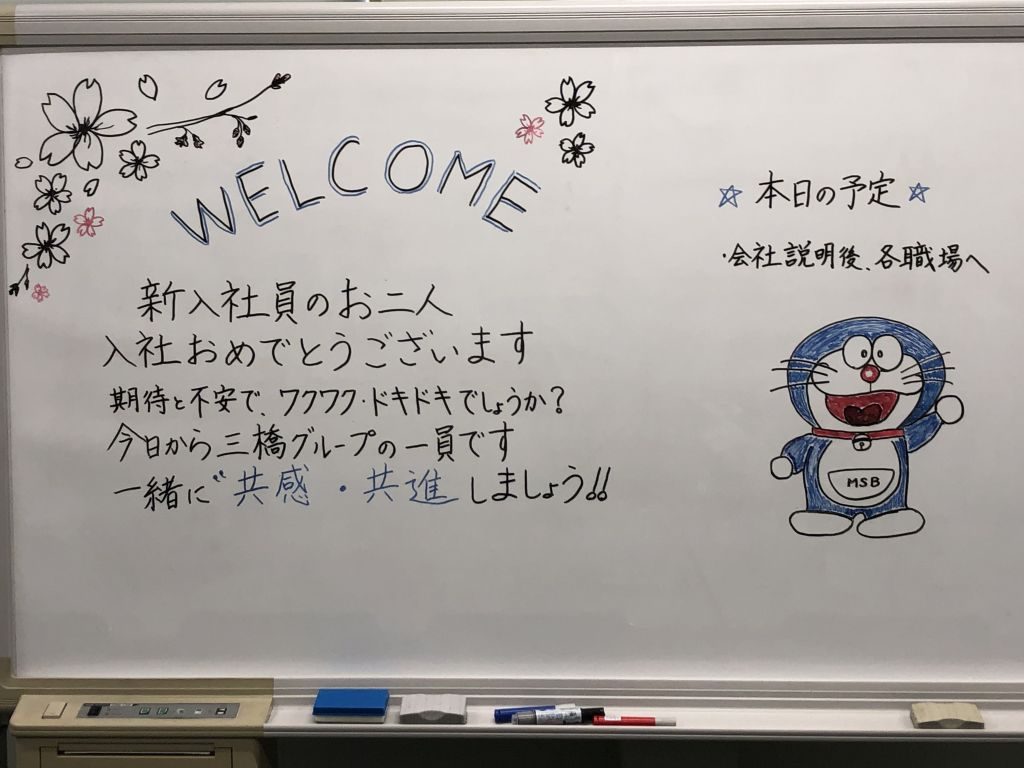 WELCOME
新入社員のお二人
入社おめでとうございます
期待と不安で、ワクワク・ドキドキでしょうか?
今日から三橋グループの一員です
一緒に"共感・共進しましょう!!
☆本日の予定☆
・会社説明後、各職場へ
MSB